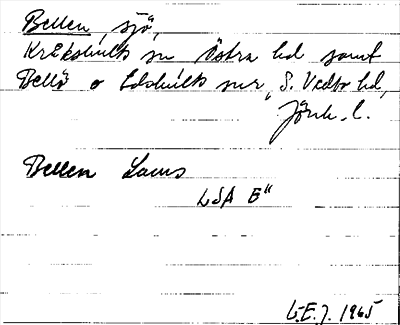 Bellen, sjö,
Kråkshults sn Östra hd samt
Bellö o Edshults snr, S. Vedbo hd,
Jönk. l.
Bellen Lacus
LSA E"
G.E.J. 1965